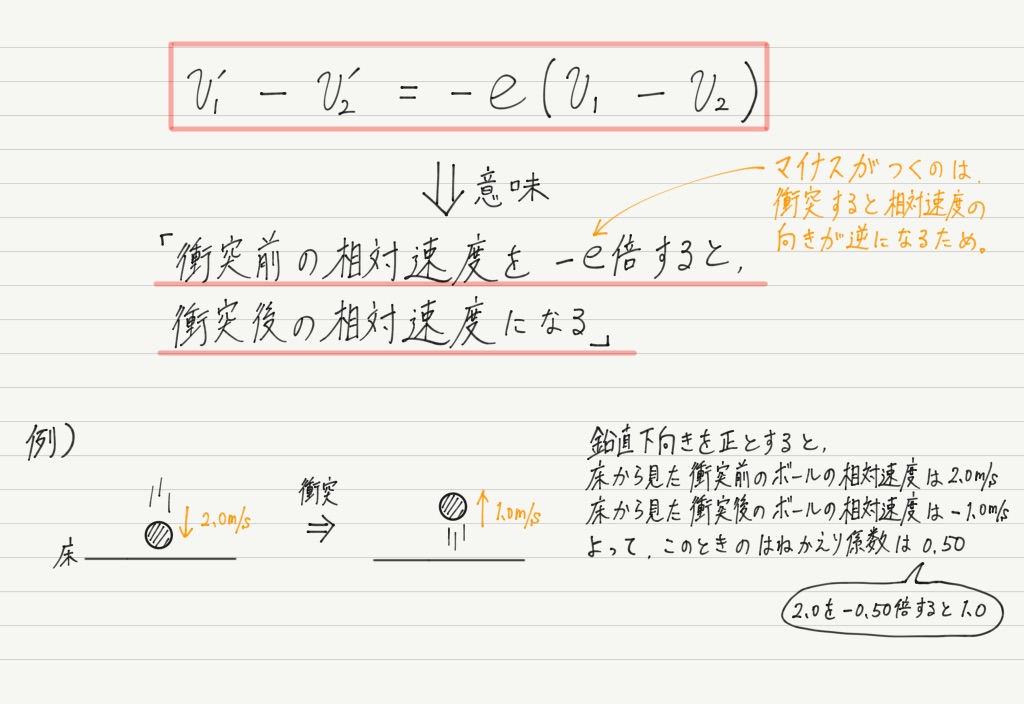 v₁′ − v₂′ = −e(v₁ − v₂)
意味
マイナスがつくのは、
衝突すると相対速度の
向きが逆になるため。
「衝突前の相対速度を −e倍すると、
衝突後の相対速度になる」
例)
2.0m/s
床
衝突
⇒
1.0m/s
鉛直下向きを正とすると、
床から見た衝突前のボールの相対速度は2.0m/s
床から見た衝突後のボールの相対速度は−1.0m/s
よって、このときのはねかえり係数は 0.50
2.0を−0.50倍すると1.0